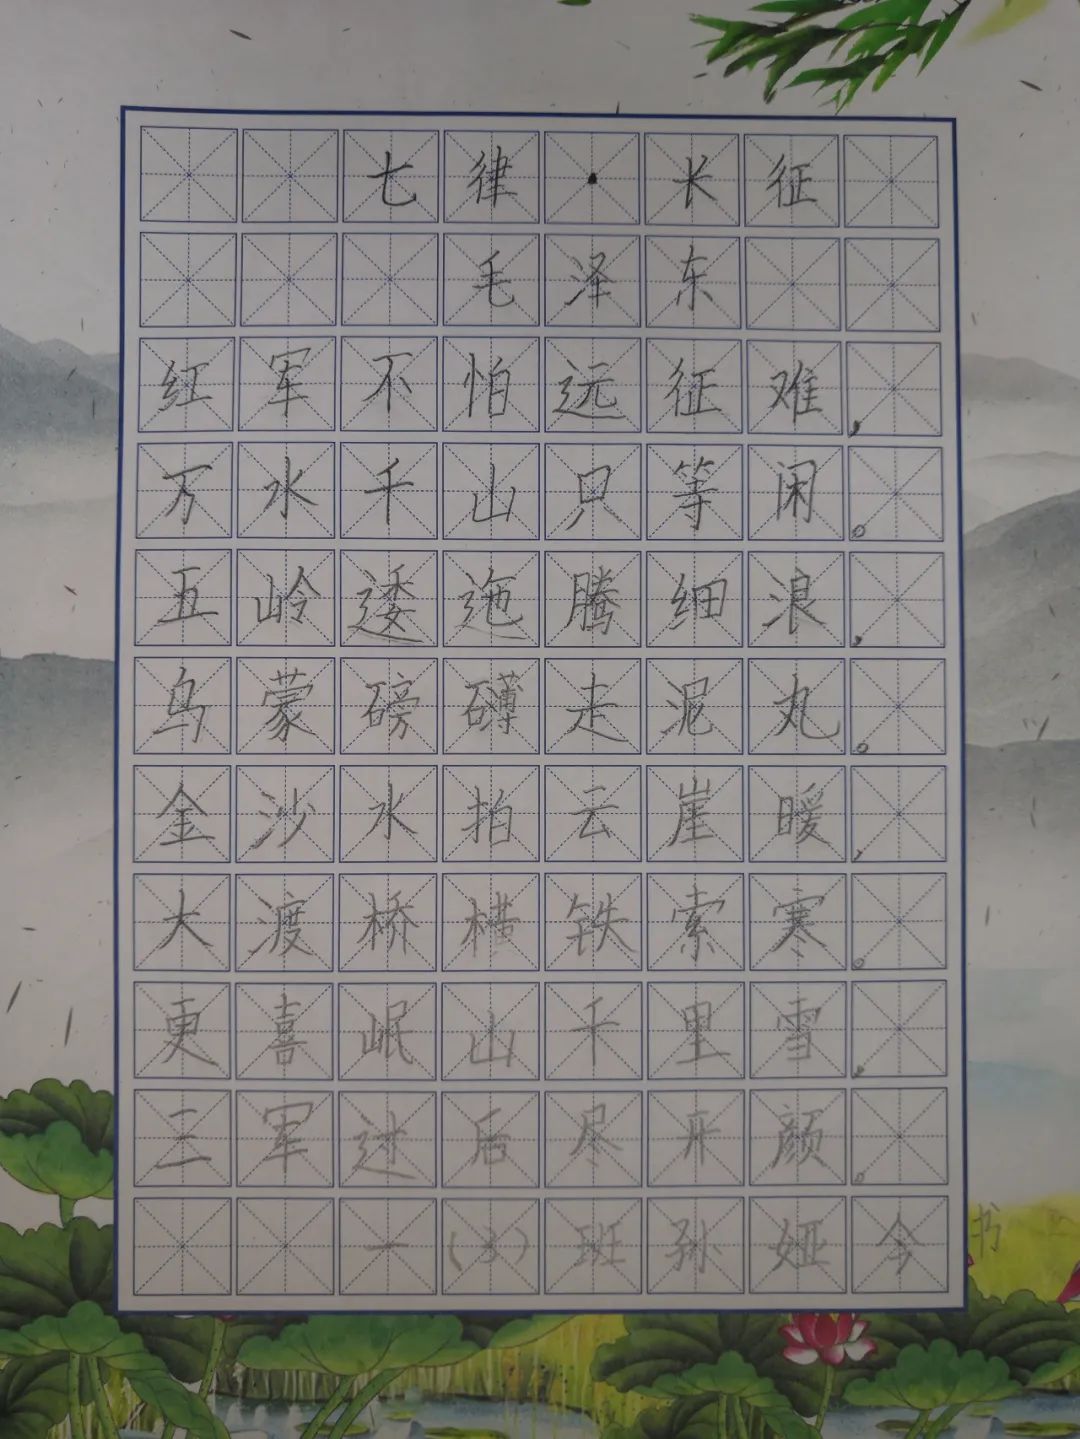 七律·长征
毛泽东
红军不怕远征难，
万水千山只等闲。
五岭逶迤腾细浪，
乌蒙磅礴走泥丸。
金沙水拍云崖暖，
大渡桥横铁索寒。
更喜岷山千里雪，
三军过后尽开颜。
一(3)班孙娅今书